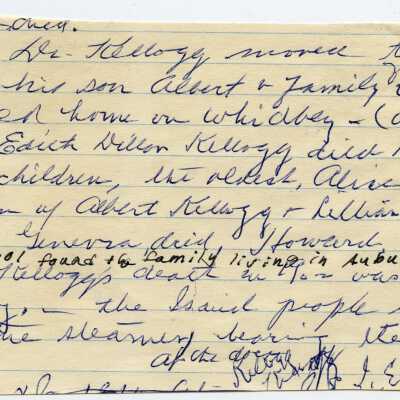 Dr. Kellogg moved
his son Albert & family
home on Whidbey - (
Edith Dillon Kellogg died
children, the oldest, Alice
of Albert Kellogg & Lillian
Genevra died Howard
found the family living in
Kellogg's death in was
the Island people
the steamer bearing the
At the
Kellogg